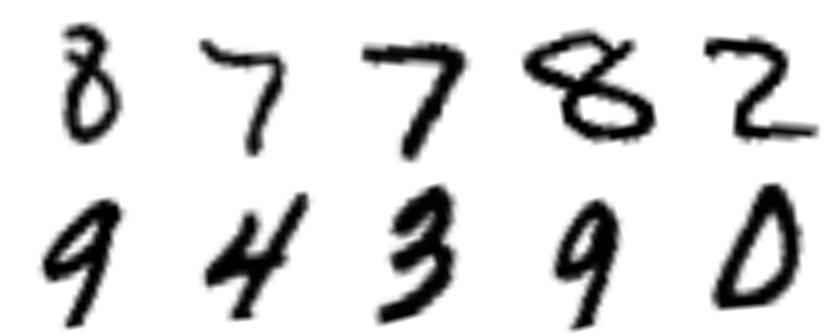 8 7 7 8 2
9 4 3 9 0